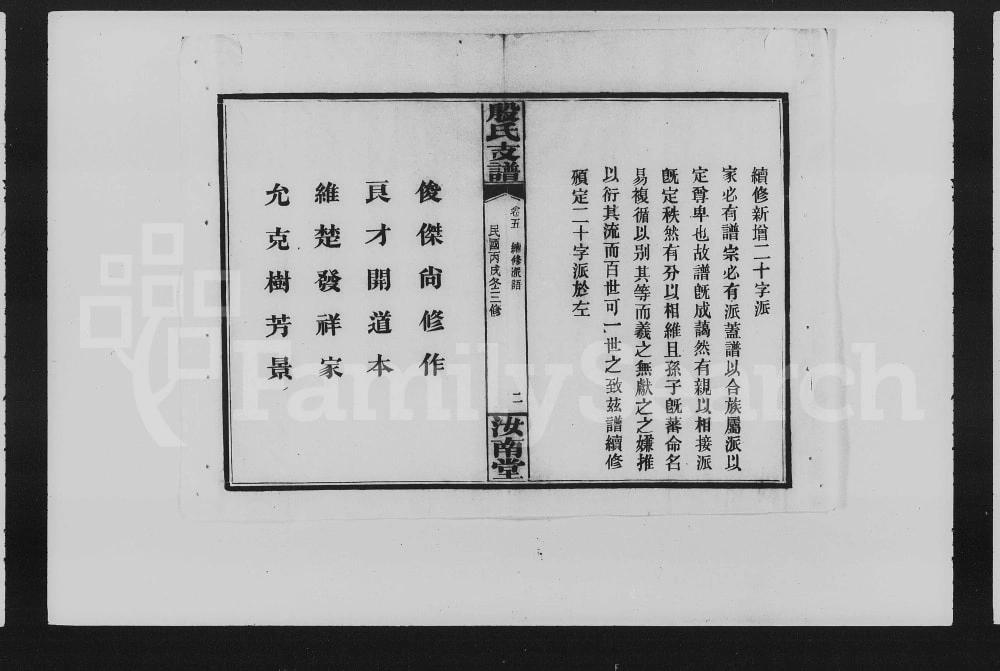 續修新增二十字派
家必有譜宗必有派蓋譜以合族屬派以
定尊卑也故譜旣成藹然有親以相接派
旣定秩然有分以相維且孫子旣蕃命名
易複循以别其等而義之無獻之之嫌推
以衍其流而百世可一世之致茲譜續修
預定二十字派於左
殷氏支譜
卷五 續修派語
民國丙戌冬三修
二
汝南堂
俊傑尚修作
良才開道本
維楚發祥家
允克樹芳景
FamilySearch